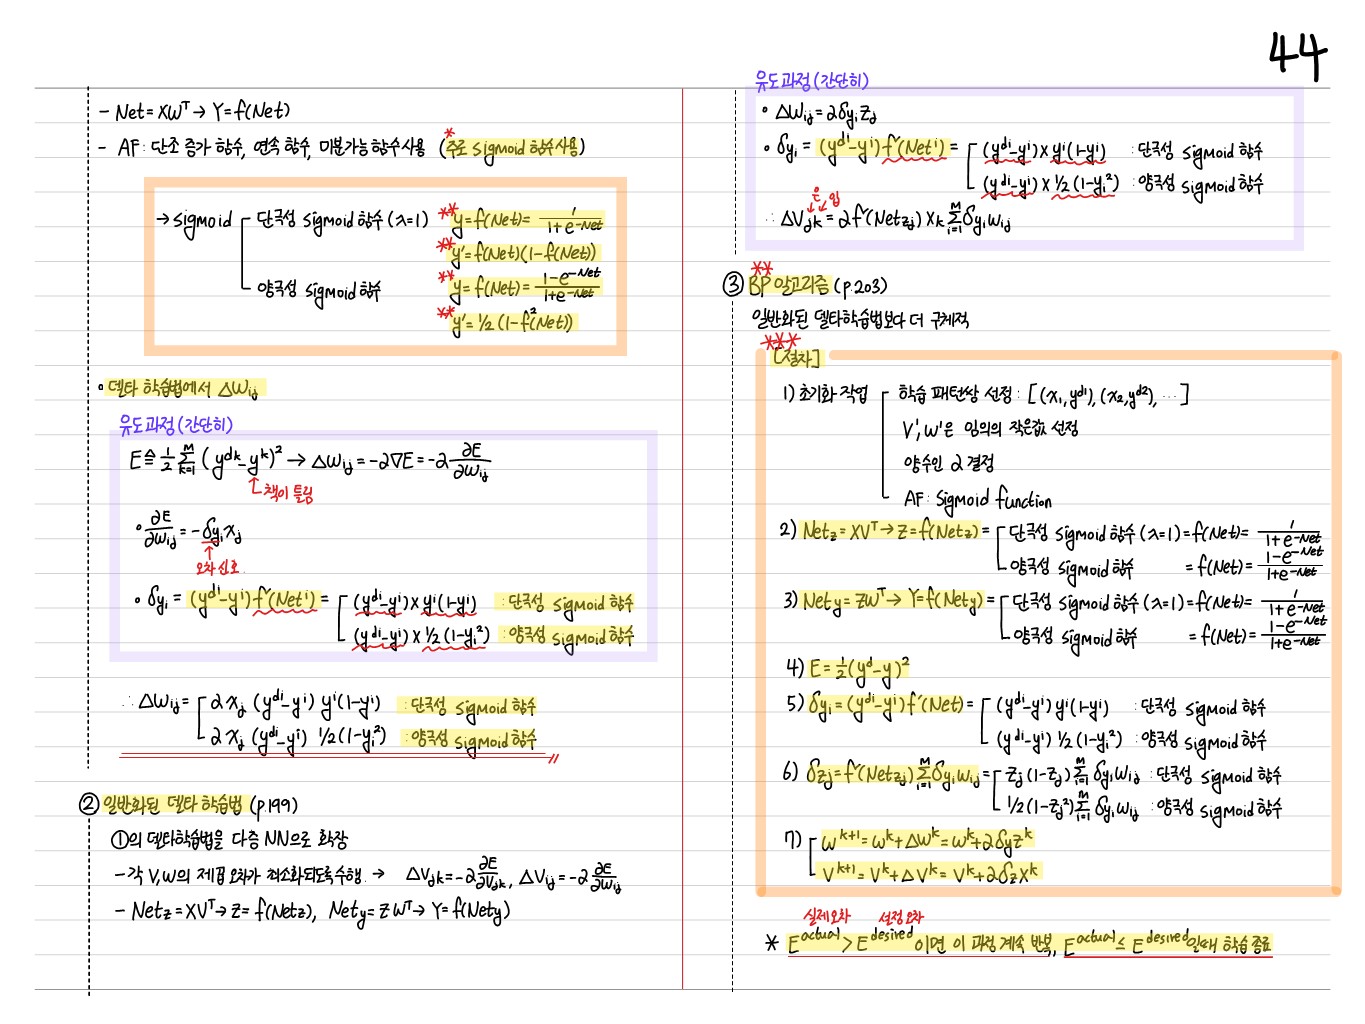 44
- Net = XWᵀ → Y = f(Net)
- AF : 단조 증가 함수, 연속 함수, 미분가능 함수 사용 (*주로 sigmoid 함수 사용)
→ sigmoid 단극성 sigmoid 함수 (λ=1) ** y = f(Net) = 1/(1+e^-Net)
** y' = f(Net)(1-f(Net))
양극성 sigmoid 함수 ** y = f(Net) = (1-e^-Net)/(1+e^-Net)
** y' = 1/2 (1-f²(Net))
• 델타 학습법에서 ΔWij
유도과정 (간단히)
E ≙ 1/2 Σ(k=1, M) (y^dk - y^k)² → ΔWij = -2∇E = -2 ∂E/∂Wij
책이 틀림
• ∂E/∂Wij = -δyi xj
오차 신호
• δyi = (y^di - y^i) f'(Net^i) = (y^di - y^i) × y^i(1-y^i) : 단극성 sigmoid 함수
(y^di - y^i) × 1/2 (1-yi²) : 양극성 sigmoid 함수
∴ ΔWij = 2 xj (y^di - y^i) y^i(1-y^i) : 단극성 sigmoid 함수
2 xj (y^di - y^i) 1/2 (1-yi²) : 양극성 sigmoid 함수
② 일반화된 델타 학습법 (p.199)
①의 델타학습법을 다층 NN으로 확장
- 각 V, W의 제곱 오차가 최소화되도록 수행 → ΔVjk = -2 ∂E/∂Vjk, ΔVij = -2 ∂E/∂Wij
- Netz = XVᵀ → Z = f(Netz), Nety = ZWᵀ → Y = f(Nety)
유도과정 (간단히)
• ΔWij = 2δyi Zj
• δyi = (y^di - y^i) f'(Net^i) = (y^di - y^i) × y^i(1-y^i) : 단극성 sigmoid 함수
(y^di - y^i) × 1/2 (1-yi²) : 양극성 sigmoid 함수
은 입
∴ ΔVjk = 2 f'(Netzj) Xk Σ(i=1, M) δyi wij
**
③ BP 알고리즘 (p.203)
일반화된 델타학습법보다 더 구체적
***
[절차]
1) 초기화 작업 학습 패턴쌍 선정 : [(x1, y^d1), (x2, y^d2), ...]
V', W'은 임의의 작은값 선정
양수인 2 결정
AF : sigmoid function
2) Netz = XVᵀ → Z = f(Netz) = 단극성 sigmoid 함수 (λ=1) = f(Net) = 1/(1+e^-Net)
양극성 sigmoid 함수 = f(Net) = (1-e^-Net)/(1+e^-Net)
3) Nety = ZWᵀ → Y = f(Nety) = 단극성 sigmoid 함수 (λ=1) = f(Net) = 1/(1+e^-Net)
양극성 sigmoid 함수 = f(Net) = (1-e^-Net)/(1+e^-Net)
4) E = 1/2 (y^d - y)²
5) δyi = (y^di - y^i) f'(Net) = (y^di - y^i) y^i(1-y^i) : 단극성 sigmoid 함수
(y^di - y^i) 1/2 (1-yi²) : 양극성 sigmoid 함수
6) δzj = f'(Netzj) Σ(i=1, M) δyi wij = Zj(1-Zj) Σ(i=1, M) δyi wij : 단극성 sigmoid 함수
1/2 (1-Zj²) Σ(i=1, M) δyi wij : 양극성 sigmoid 함수
7) W^k+1 = W^k + ΔW^k = W^k + 2δy Z^k
V^k+1 = V^k + ΔV^k = V^k + 2δz X^k
실제 오차 선정 오차
* E^actual > E^desired 이면 이 과정 계속 반복, E^actual ≤ E^desired 일때 학습 종료